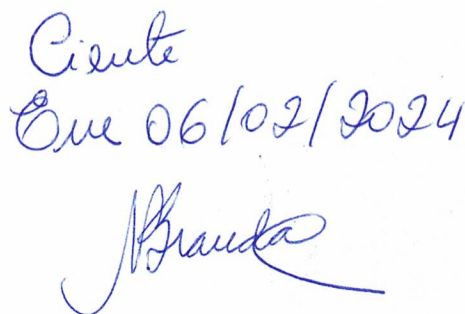 Ciente
Em 06/02/2024
NBrandão